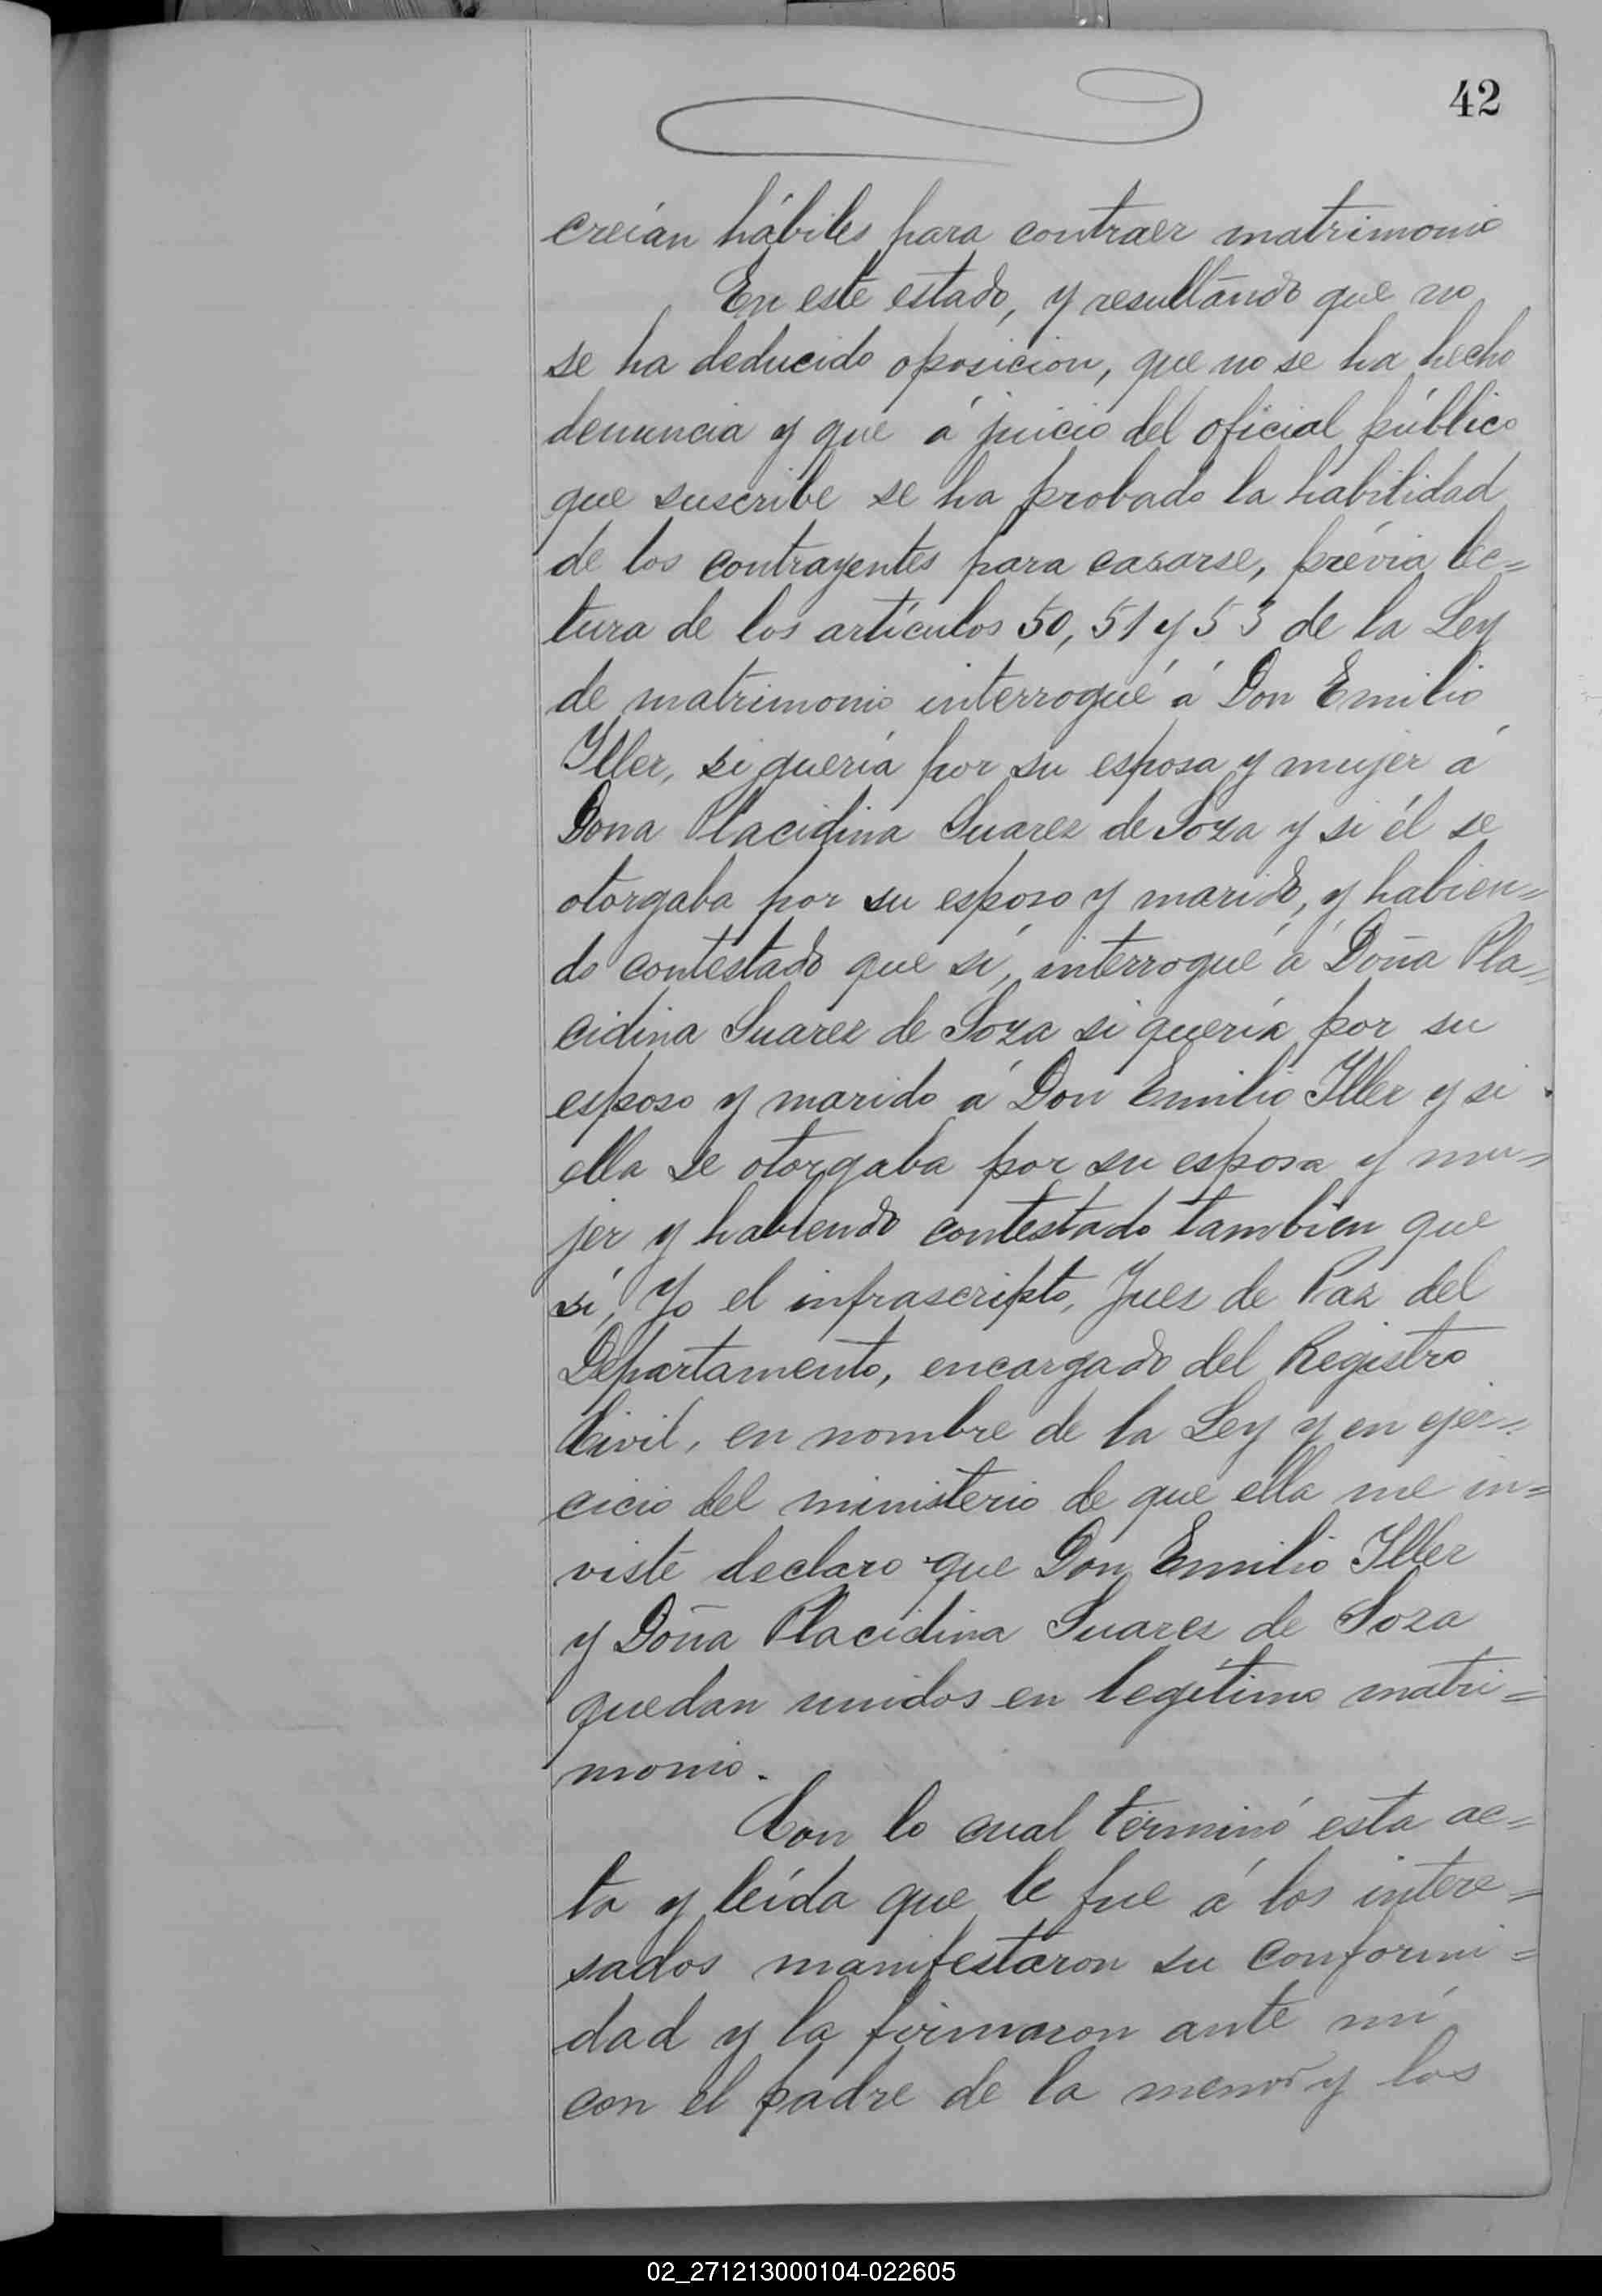 42
creían hábiles para contraer matrimonio
En este estado, y resultando que no
se ha deducido oposicion, que no se ha hecho
denuncia y que á juicio del oficial público
que suscribe se ha probado la habilidad
de los contrayentes para casarse, prévia lec=
tura de los artículos 50, 51 y 53 de la Ley
de matrimonio interrogué á Don Emilio
Iller, si quería por su esposa y mujer á
Dona Placidina Suarez de Soza y si él se
otorgaba por su esposo y marido, y habien=
do contestado que sí, interrogué á Doña Pla=
cidina Suarez de Soza si quería por su
esposo y marido á Don Emilio Iller y si
ella se otorgaba por su esposa y mu=
jer y habiendo contestado tambien que
sí, Yo el infrascripto, Juez de Paz del
Departamento, encargado del Registro
Civil, en nombre de la Ley y en ejer=
cicio del ministerio de que ella me in=
viste declaro que Don Emilio Iller
y Doña Placidina Suarez de Soza
quedan unidos en legítimo matri=
monio.
Con lo cual terminó esta ac=
ta y leída que le fue á los intere=
sados manifestaron su conformi=
dad y la firmaron ante mí
con el padre de la menor y los
02_271213000104-022605